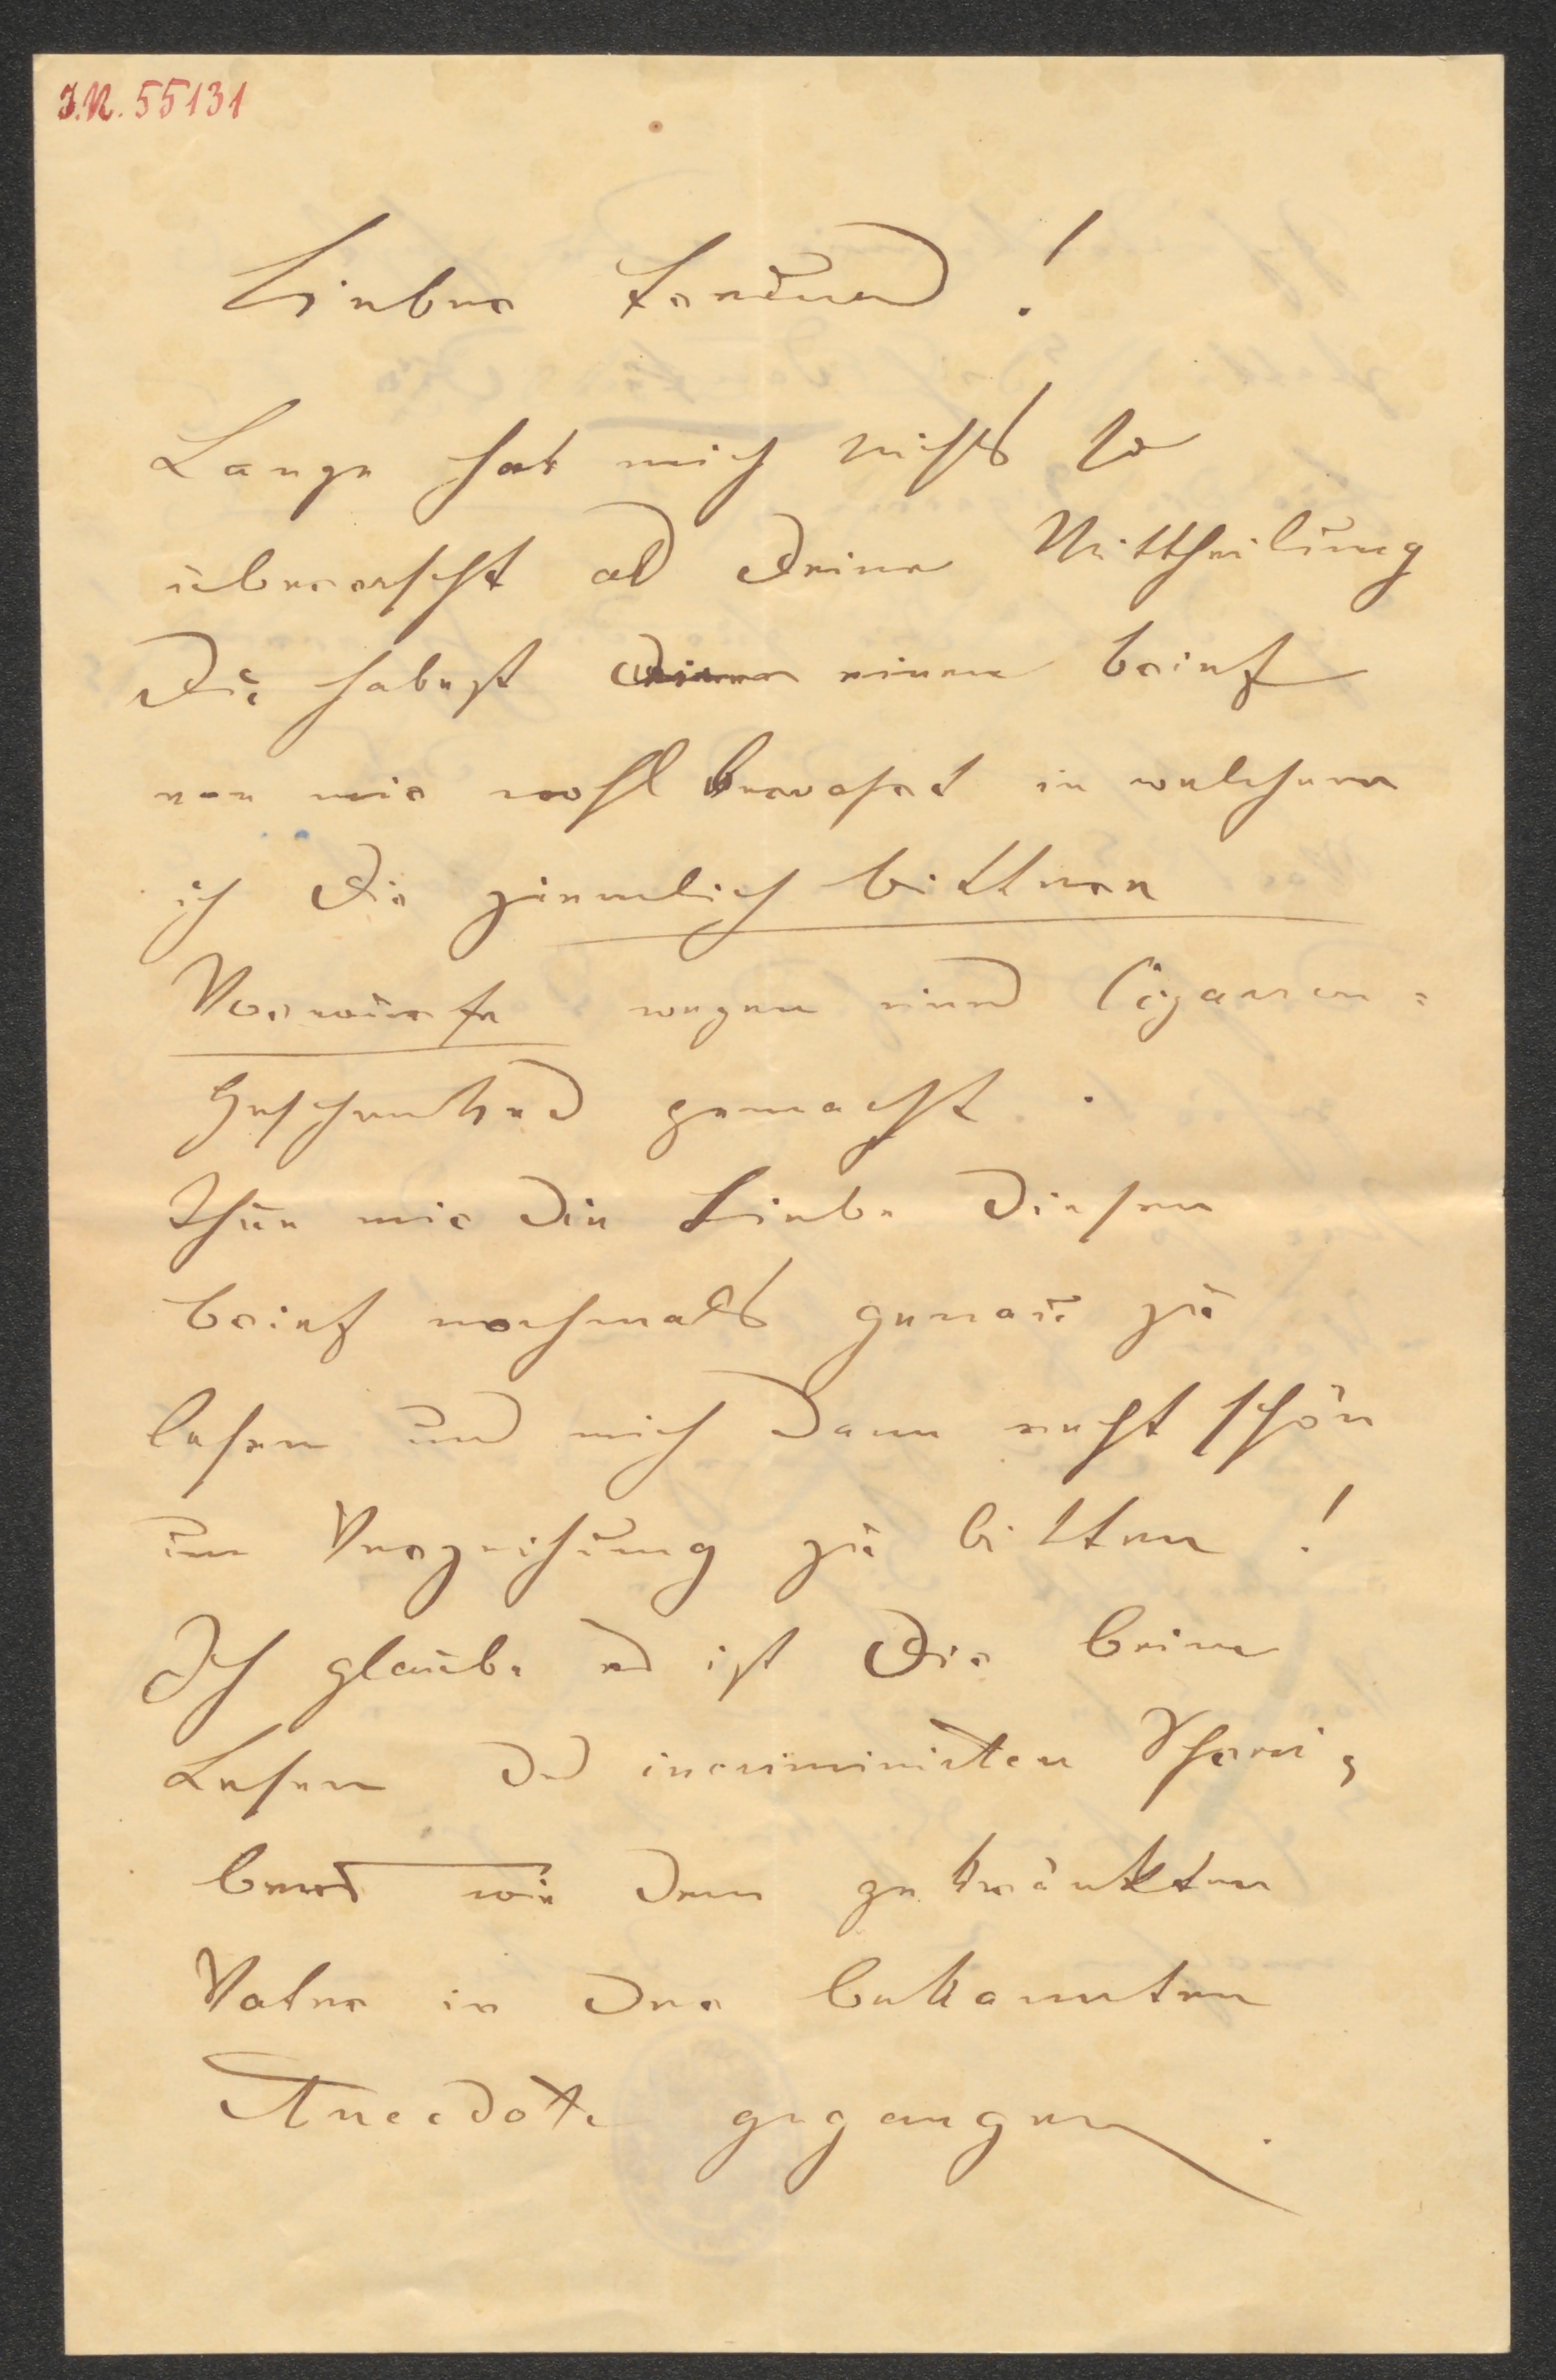 I.N. 55131
Lieber Freund!
Lange hat mich nichts so
überrascht als Deine Mittheilung
Du habest einen Brief
von mir wohl bewahrt in welchem
ich Dir ziemlich bittere
Vorwürfe wegen eines Cigarren-
geschenkes gemacht.
Thue mir die Liebe diesen
Brief nochmals genau zu
lesen und mich dann recht schön
um Verzeihung zu bitten!
Ich glaube es ist Dir beim
Lesen des incriminirten Schrei-
bens wie dem gekränkten
Vater in der bekannten
Anecdote gegangen.